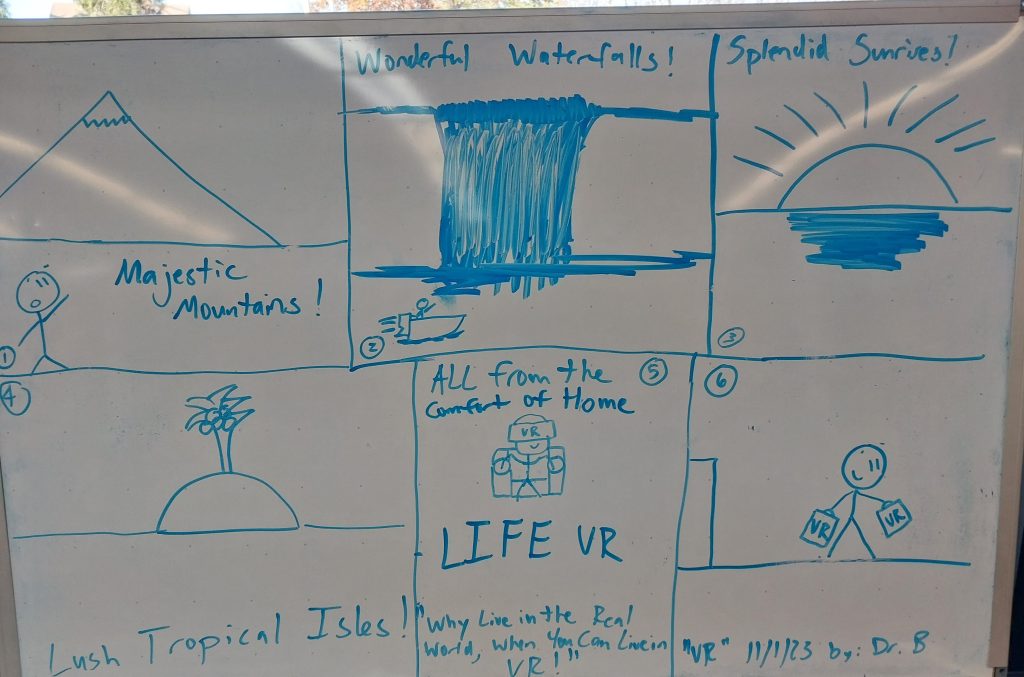 Majestic
Mountains!
1
Wonderful Waterfalls!
2
Splendid Sunrises!
3
4
Lush Tropical Isles!
ALL from the
Comfort of Home
5
VR
LIFE VR
"Why Live in the Real
World, when You Can Live in
VR!"
6
VR
VR
"VR" 11/1/23 by: Dr. B